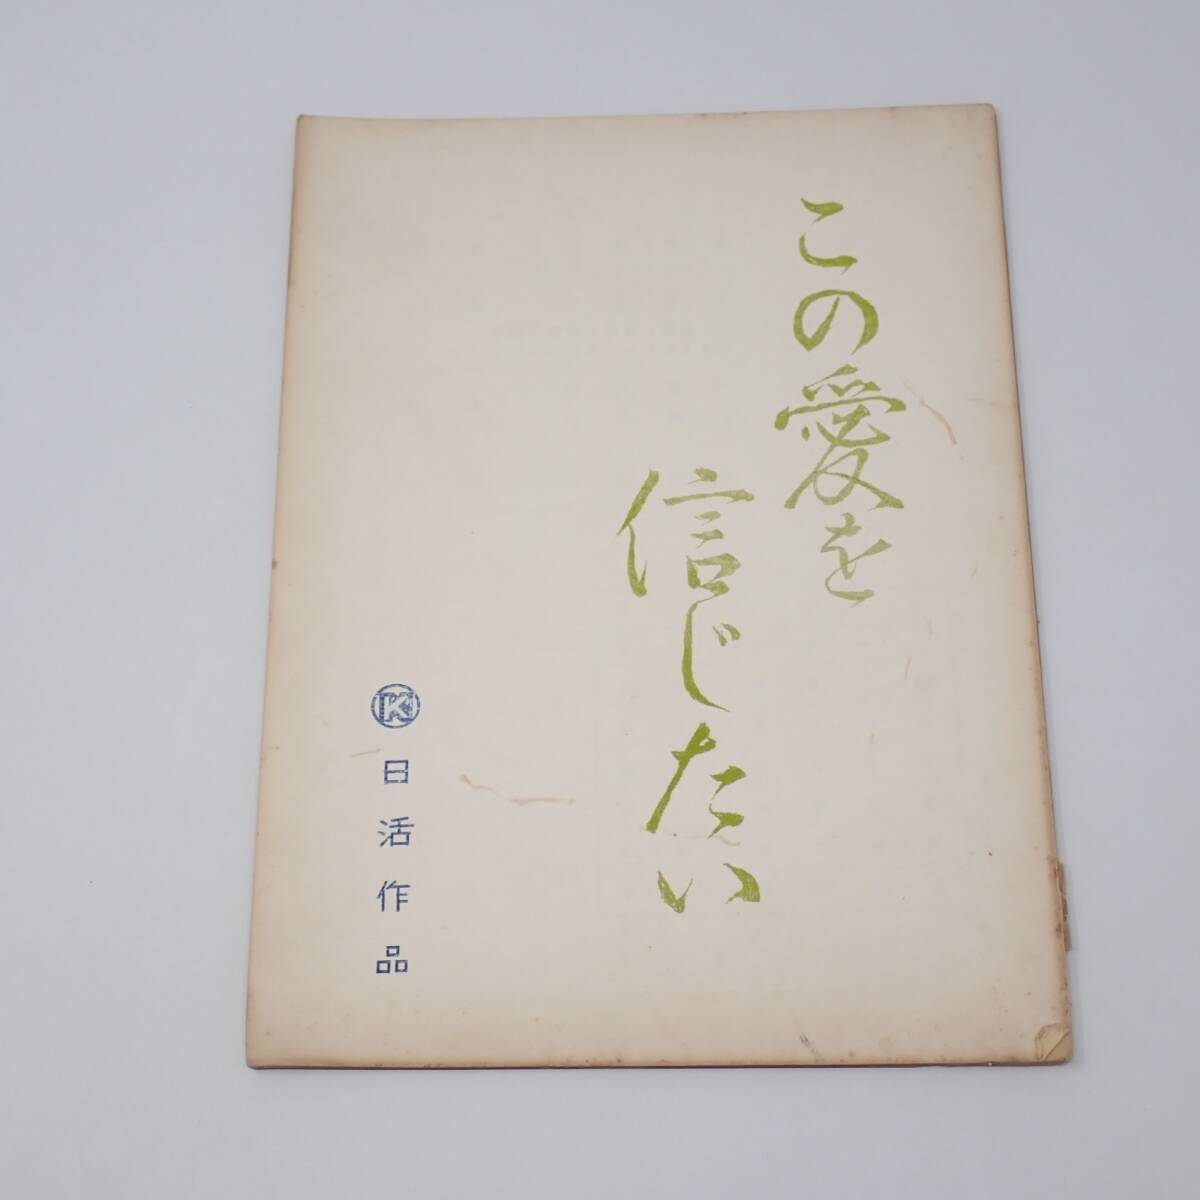 この愛を
信じたい
NK
日活作品